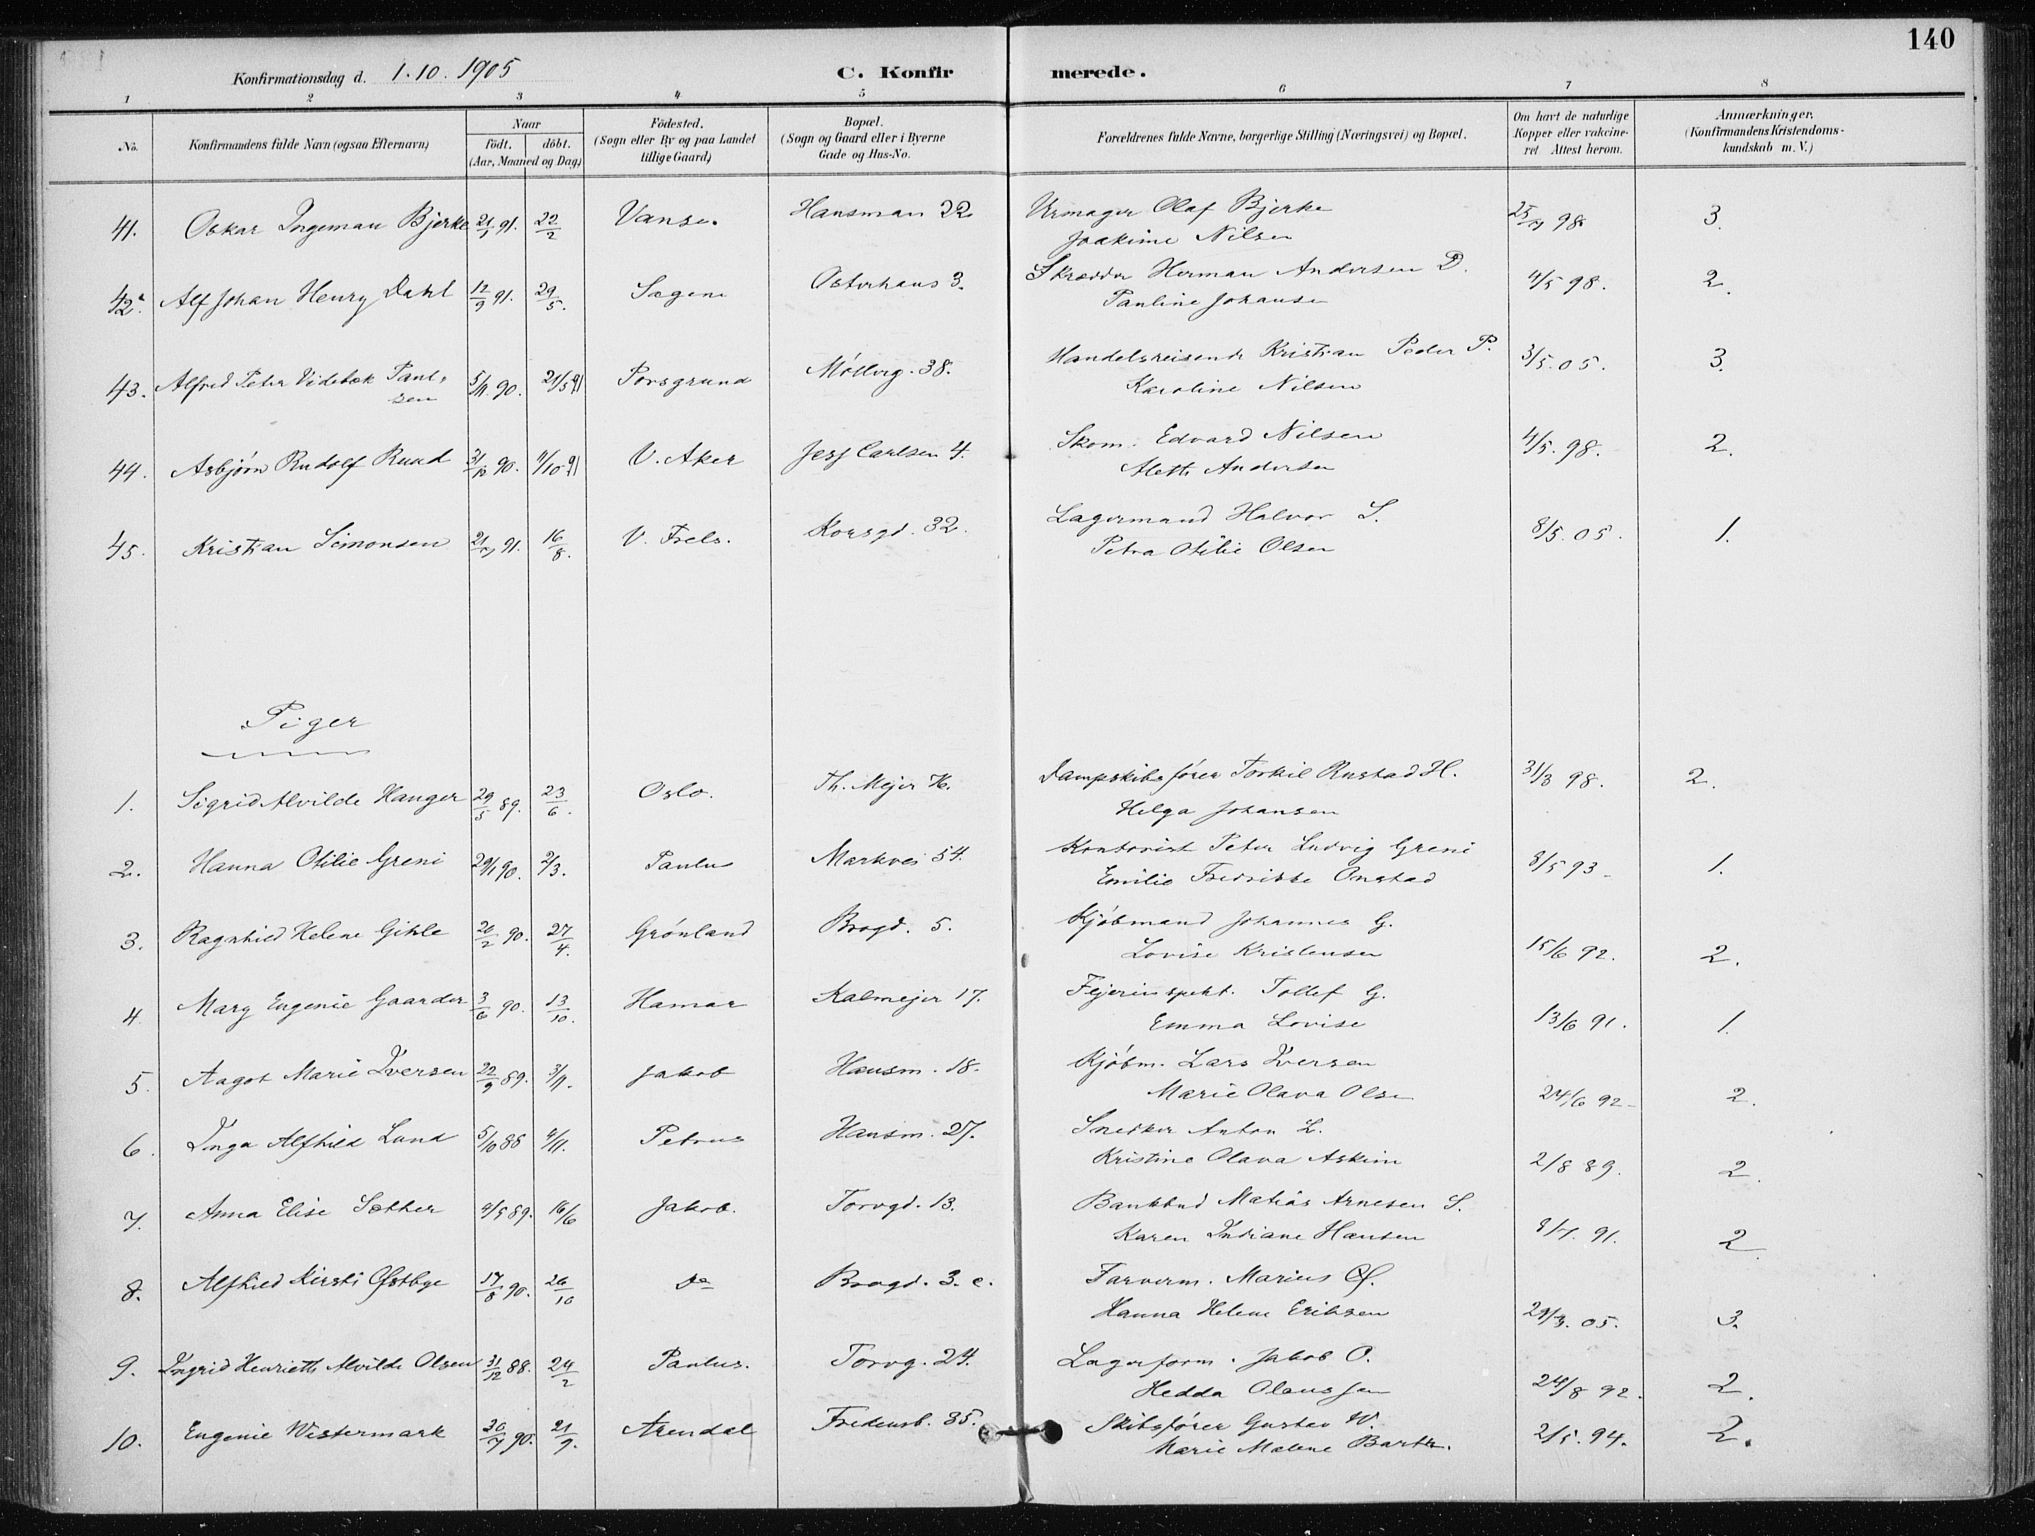 140
Konfirmationsdag d. 1.10.1905 C. Konfirmerede.
1 2 3 4 5 6 7 8
No. Konfirmandens fulde Navn (ogsaa Efternavn) Naar födt. döbt. (Aar, Maaned og Dag) Födested. (Sogn eller By og paa Landet tillige Gaard) Bopæl. (Sogn og Gaard eller i Byerne Gade og Hus-No. Forældrenes fulde Navne, borgerlige Stilling (Næringsvei) og Bopæl. Om havt de naturlige Kopper eller vakcineret Attest herom. Anmærkninger. (Konfirmandens Kristendomskundskab m. V.)
41. Oskar Ingeman Bjerke 21/1 91. 22/2 Vanse. Hausman 22 Urmager Olaf Bjerke 98 3.
Joakime Nilsen
42. Alf Johan Henry Dahl 91. 29/5. Sagene Osterhaus 3. Skrædder Herman Andersen D. 4/5 98. 2.
Pauline Johansen
43. Alfred Peter Videbæk Paulsen 5/11 90. 21/5 91 Porsgrund Möllerg. 38. Handelsreisende Kristian Peder P. 3/5. 05. 3.
Karoline Nilsen
44. Asbjørn Rudolf Ruud 31/10 90. 11/10 91 V. Aker Jess Carlsen 4. Skom. Edvard Nilsen 4/5. 98. 2.
Aleth Andersen
45. Kristian Simonsen 21/7 91. 16/8. V. Frels. Korsgd. 32. Lagermand Halvor S. 8/5. 05. 1.
Petra Otilie Olsen
Piger
1. Sigrid Alvilde Hanger 29/5 89. 23/6. Oslo. Th. Mejer Dampskibsfører Torkil Rustad H. 31/3 98. 2.
Helga Johansen
2. Hanna Otilie Greni 29/1 90. 2/3. Paulus Markvei 54. Kontorist Peter Ludvig Greni 8/5 93 1.
Emilie Fredrikke Onstad
3. Ragnhild Helene Gihle 20/2 90. 27/4. Grönland Brogd. 5. Kjöbmand Johannes G.
Lovise Kristensen 15/6 92. 2.
4. Mary Eugenie Gaarder 3/6 90. 13/10. Hamar Kalmejer 17. Fejerinspekt. Tollef G.
Emma Lovise 13/6 91. 1.
5. Aagot Marie Iversen 22/9 89. 3/11. Jakob Hausm. 18. Kjöbm. Lars Iversen
Marie Olava Olsen 24/6 92 2.
6. Inga Alfhild Lund 5/10 88 4/11. Petrus Hausm. 27. Snedker Anton L.
Kristine Olava Askim 2/8 89. 2.
7. Anna Elise Sæther 4/5 89. 16/6 Jakob. Torvgd. 13. Bankbud Matias Arnesen S.
Karen Indiane Hansen 8/7. 91. 2.
8. Alfhild Kirsti Østbye 17/8 90. 26/10 do Brogd. 3. c. Farverm. Marius Ø.
Hanna Helene Eriksen 29/3. 05. 3.
9. Ingrid Henriette Alvilde Olsen 31/12 88. 24/2 Paulus. Torvg. 24. Lagerform. Jakob O.
Hedda Olaussen 24/8 92. 2.
10. Eugenie Westermark 30/7 90. 21/9. Arendal Fredensb. 35. Skibsfører Gustav W. 2/5. 94. 2.
Marie Malene Barth.